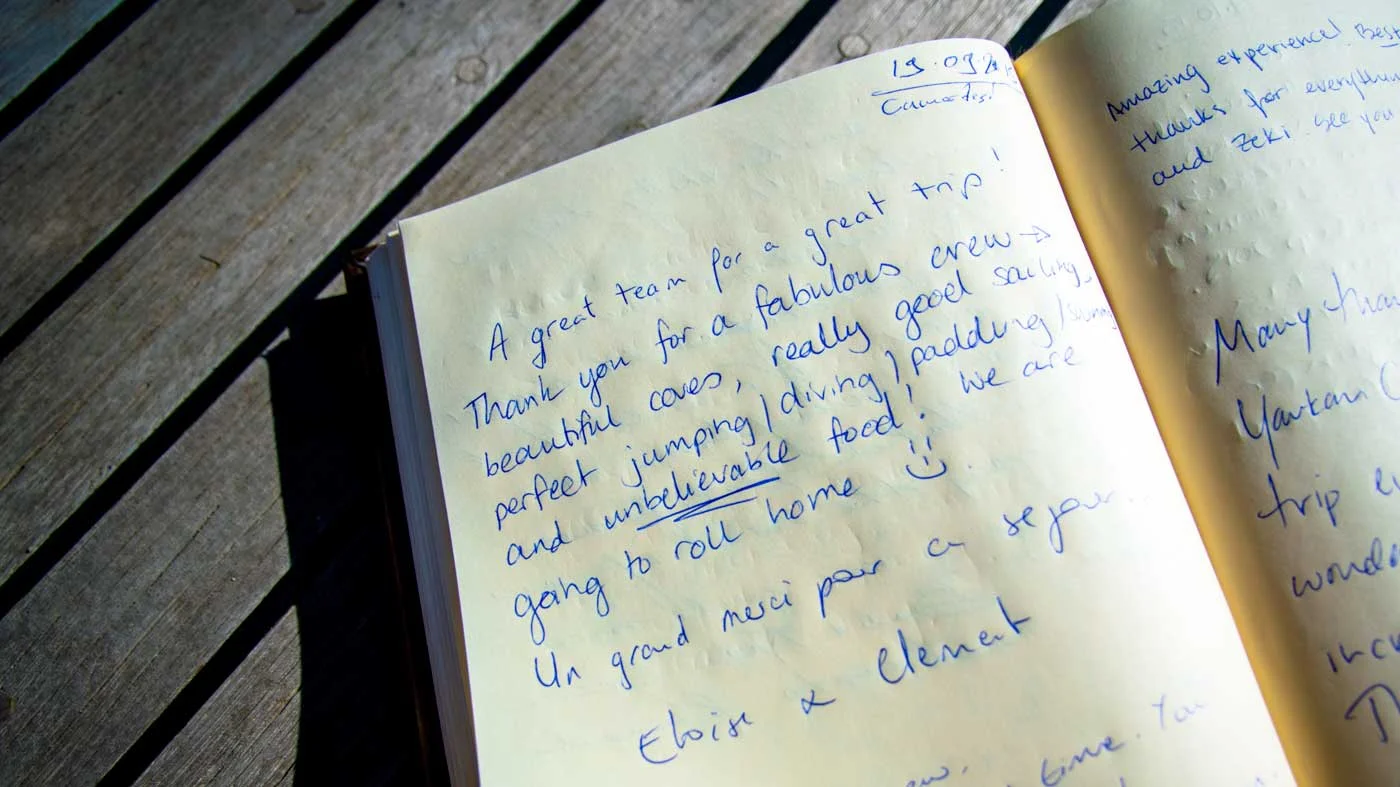 19.09.
A great team for a great trip!
Thank you for a fabulous crew →
beautiful coves, really good sailing,
perfect jumping/diving/paddling/
and unbelievable food! We are
going to roll home
Un grand merci pour ce séjour..
Eloise & Clement
time. You
Amazing experience! Best
thanks for everything
and Zeki. See you
Many
trip